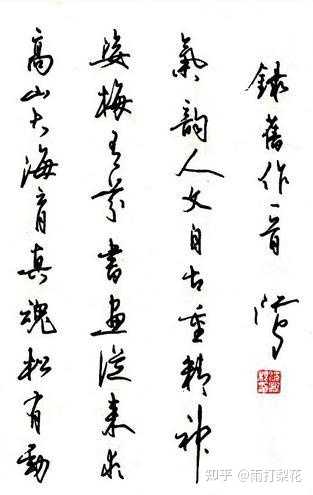 高山大海育真魂松有勁
姿梅有芬書畫從來求
氣韻人文自古重精神
錄舊作一首
知乎 @雨打梨花